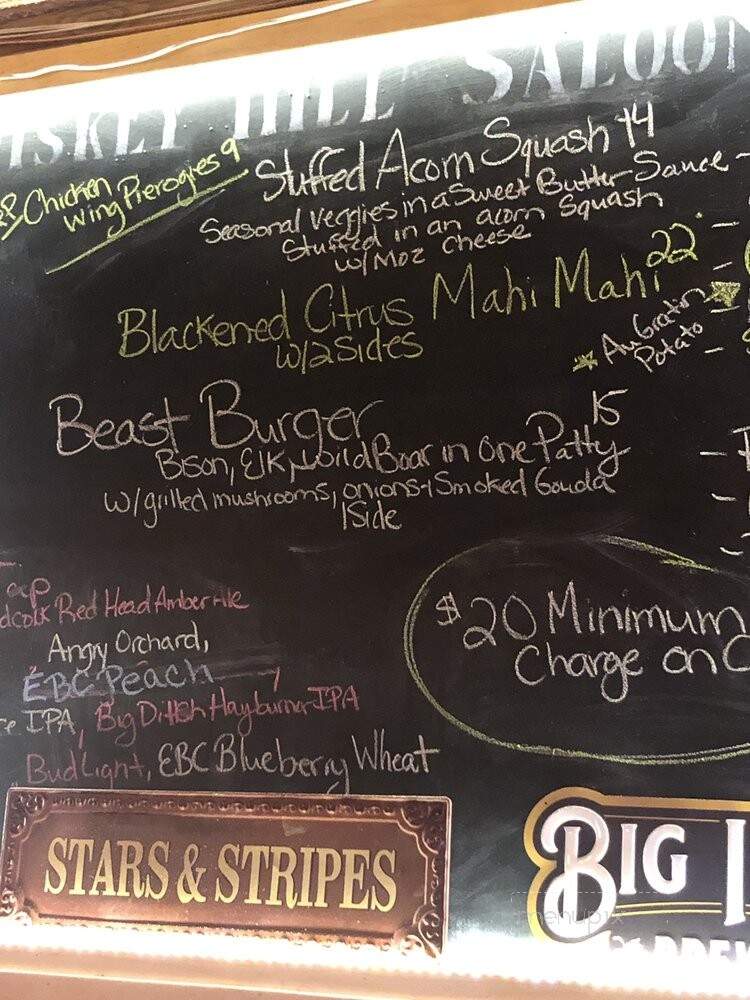 HILL SALOON
Chicken
Wing Pierogies 9
Stuffed Acorn Squash 14
Seasonal Veggies in a Sweet Butter Sauce
Stuffed in an acorn Squash
w/Moz cheese
Blackened Citrus Mahi Mahi 22
w/2 Sides
* Au Gratin
Potato
Beast Burger 15
Bison, Elk, Wild Boar in One Patty
w/grilled mushrooms, onions + Smoked Gouda
1 Side
Red Head Amber Ale
Angry Orchard,
EBC Peach
IPA, Big Ditch Hayburner IPA
Bud Light, EBC Blueberry Wheat
$20 Minimum
Charge on C
STARS & STRIPES
BIG
menupix